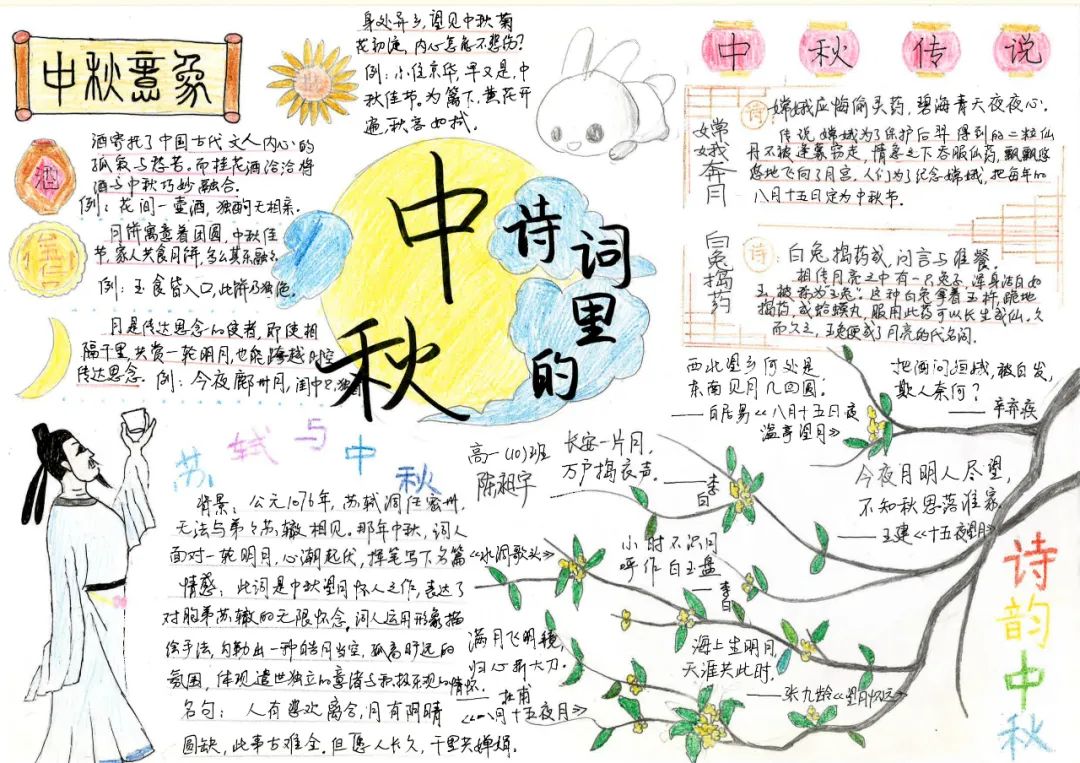 中秋意象
酒
酒寄托了中国古代文人内心的
孤寂与愁苦。而桂花酒恰恰将
酒与中秋巧妙融合。
例：花间一壶酒，独酌无相亲。
五仁
月饼寓意着团圆，中秋佳
节，家人共食月饼，多么其乐融融
例：玉食皆入口，此饼乃独色。
月是传达思念的使者，即使相
隔千里，共赏一轮明月，也能跨越时空
传达思念。例：今夜鄜州月，闺中只独看
身处异乡，望见中秋菊
花初绽，内心怎能不悲伤？
例：小住京华，早又是，中
秋佳节。为篱下，黄花开
遍，秋容如拭。
中秋
诗词里的
中秋传说
嫦娥奔月
诗：嫦娥应悔偷灵药，碧海青天夜夜心。
传说嫦娥为了保护后羿得到的二粒仙
丹不被逢蒙窃走，情急之下吞服仙药，飘飘悠
悠地飞向了月宫，人们为了纪念嫦娥，把每年的
八月十五日定为中秋节。
白兔捣药
诗：白兔捣药成，问言与谁餐。
相传月亮之中有一只兔子，浑身洁白如
玉，被称为玉兔。这种白兔拿着玉杵，跪地
捣药，成蛤蟆丸，服用此药可以长生成仙，久
而久之，玉兔便成了月亮的代名词。
苏轼与中秋
背景：公元1076年，苏轼调任密州，
无法与弟弟苏辙相见。那年中秋，词人
面对一轮明月，心潮起伏，挥笔写下名篇《水调歌头》
情感：此词是中秋望月怀人之作，表达了
对胞弟苏辙的无限怀念，词人运用形象描
绘手法，勾勒出一种皓月当空，孤高旷远的
氛围，体现遗世独立的意绪与积极乐观的情怀。
名句：人有悲欢离合，月有阴晴
圆缺，此事古难全。但愿人长久，千里共婵娟。
高一(10)班
陈昶宇
长安一片月，
万户捣衣声。
——李白
小时不识月
呼作白玉盘
——李白
满月飞明镜，
归心折大刀。
——杜甫
《八月十五夜月》
西北望乡何处是
东南见月几回圆。
——白居易《八月十五日夜
湓亭望月》
把酒问姮娥，被白发，
欺人奈何？
——辛弃疾
今夜月明人尽望，
不知秋思落谁家。
——王建《十五夜望月》
海上生明月，
天涯共此时。
——张九龄《望月怀远》
诗韵中秋